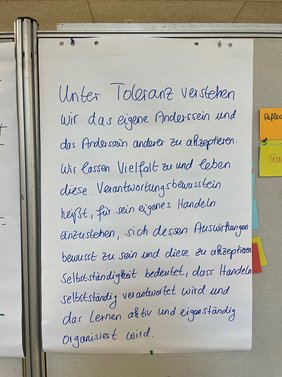 Unter Toleranz verstehen
wir das eigene Anderssein und
das Anderssein anderer zu akzeptieren.
Wir lassen Vielfalt zu und leben
diese. Verantwortungsbewusstein
heißt, für sein eigenes Handeln
einzustehen, sich dessen Auswirkungen
bewusst zu sein und diese zu akzeptieren
Selbstständigkeit bedeutet, dass Handeln
selbstständig verantwortet wird und
das Lernen aktiv und eigenständig
organisiert wird.